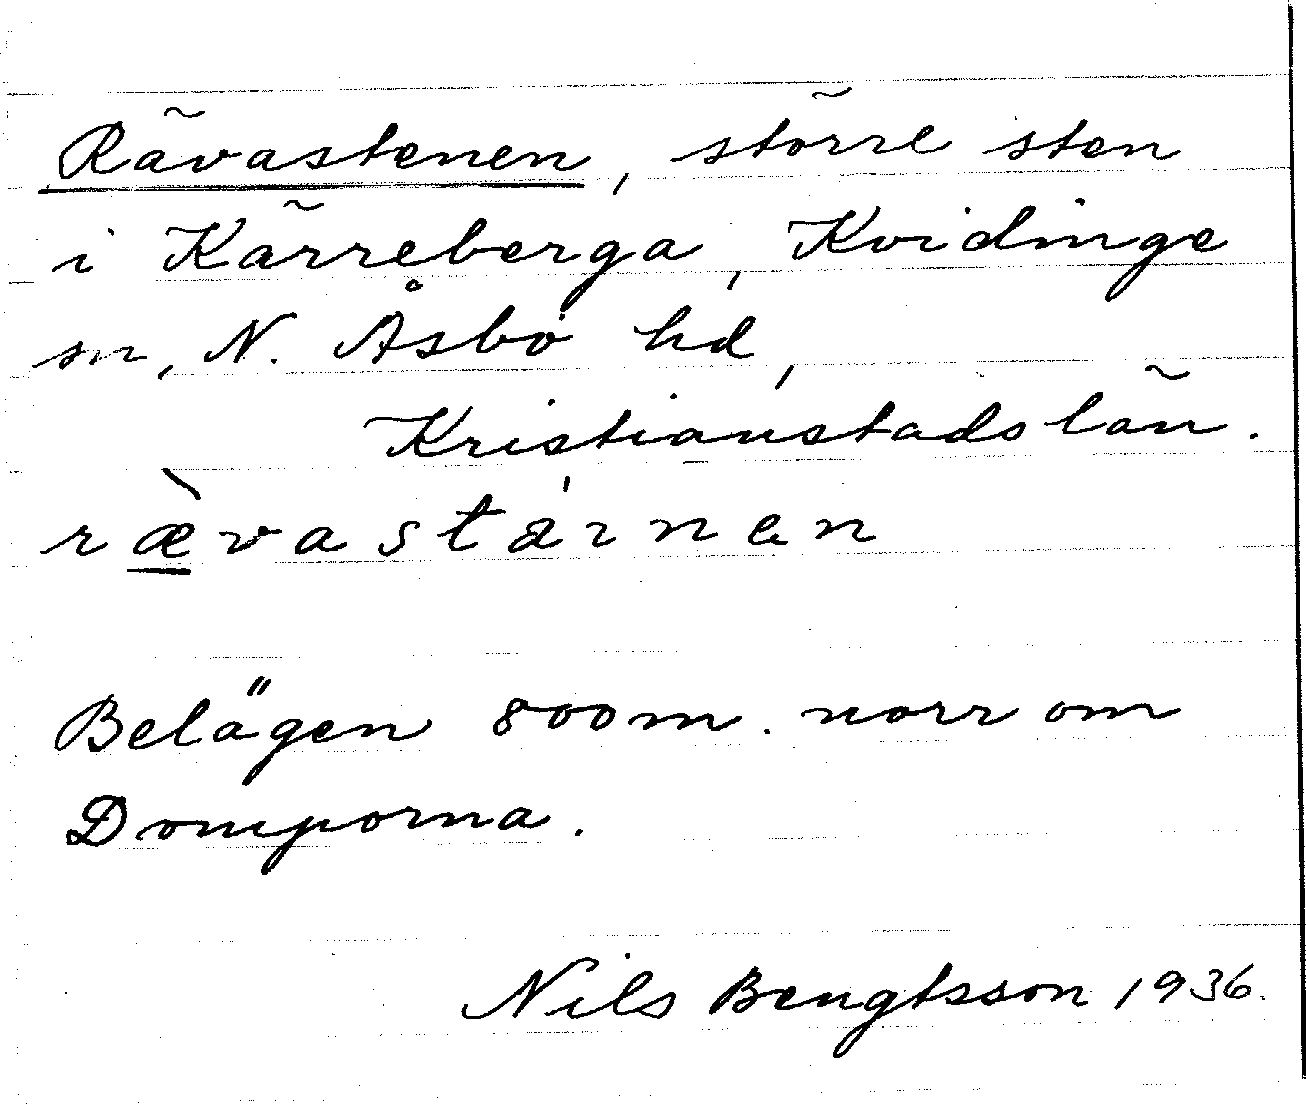 Rävastenen, större sten
i Kärreberga, Kvidinge
sn, N. Åsbo hd,
Kristianstads län.
ræ̀vastáinen
Belägen 800 m. norr om
Domporna.
Nils Bengtsson 1936.